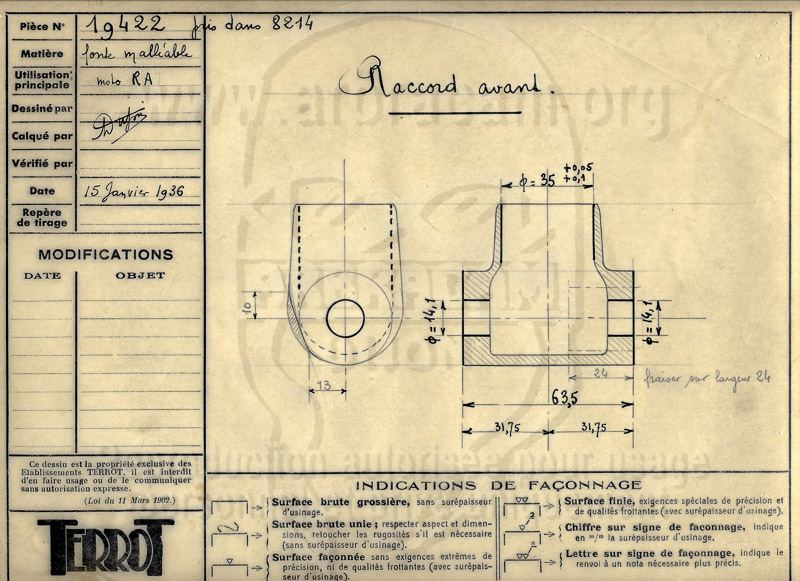 Pièce N° 19422 pris dans 8214
Matière fonte malléable
Utilisation principale moto RA
Dessiné par
Calqué par
Vérifié par
Date 15 Janvier 1936
Repère de tirage
MODIFICATIONS
DATE OBJET
Ce dessin est la propriété exclusive des
Etablissements TERROT, il est interdit
d'en faire usage ou de le communiquer
sans autorisation expresse.
(Loi du 11 Mars 1902.)
TERROT
Raccord avant.
ϕ=35 +0,05
+0,1
10
13
ϕ=14,1
ϕ=14,1
24 fraiser sur largeur 24
63,5
31,75 31,75
INDICATIONS DE FAÇONNAGE
Surface brute grossière, sans surépaisseur
d'usinage.
Surface brute unie ; respecter aspect et dimen-
sions, retoucher les rugosités s'il est nécessaire
(sans surépaisseur d'usinage).
Surface façonnée sans exigences extrêmes de
précision, ni de qualités frottantes (avec surépais-
seur d'usinage).
Surface finie, exigences spéciales de précision et
de qualités frottantes (avec surépaisseur d'usinage).
Chiffre sur signe de façonnage, indique
en m/m la surépaisseur d'usinage.
Lettre sur signe de façonnage, indique le
renvoi à un nota nécessaire plus précis.